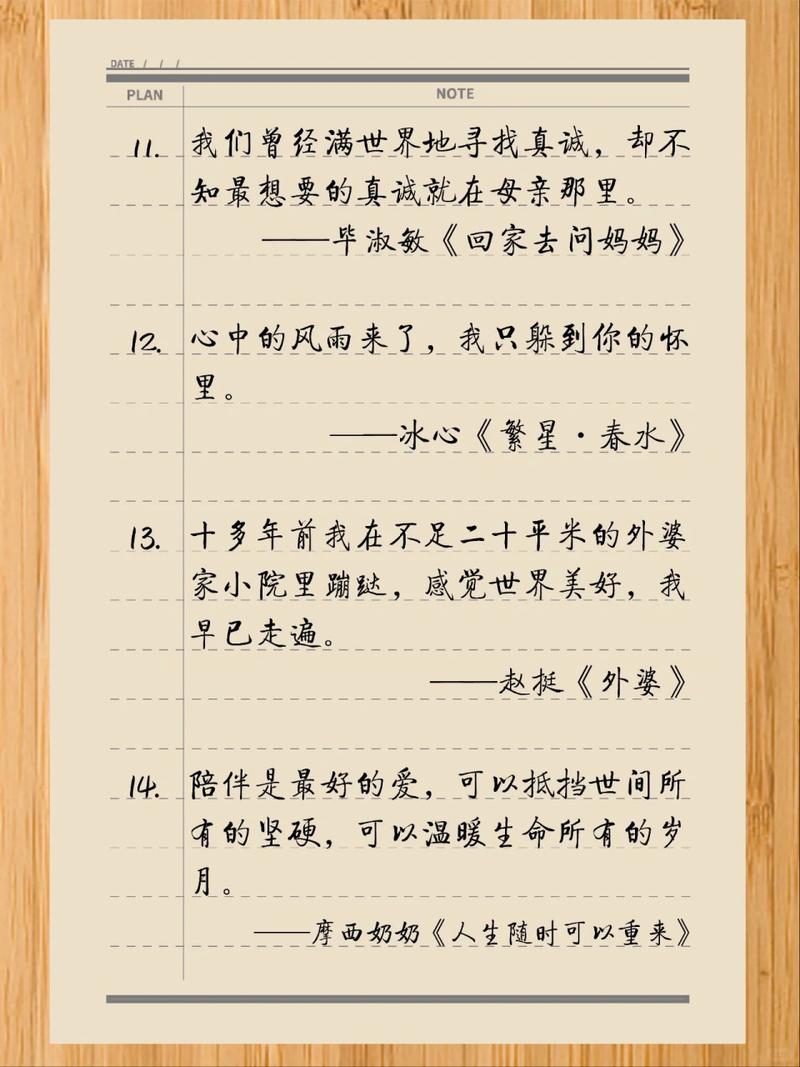 DATE / / /
PLAN NOTE
11. 我们曾经满世界地寻找真诚，却不
知最想要的真诚就在母亲那里。
——毕淑敏《回家去问妈妈》
12. 心中的风雨来了，我只躲到你的怀
里。
——冰心《繁星·春水》
13. 十多年前我在不足二十平米的外婆
家小院里蹦跶，感觉世界美好，我
早已走遍。
——赵挺《外婆》
14. 陪伴是最好的爱，可以抵挡世间所
有的坚硬，可以温暖生命所有的岁
月。
——摩西奶奶《人生随时可以重来》